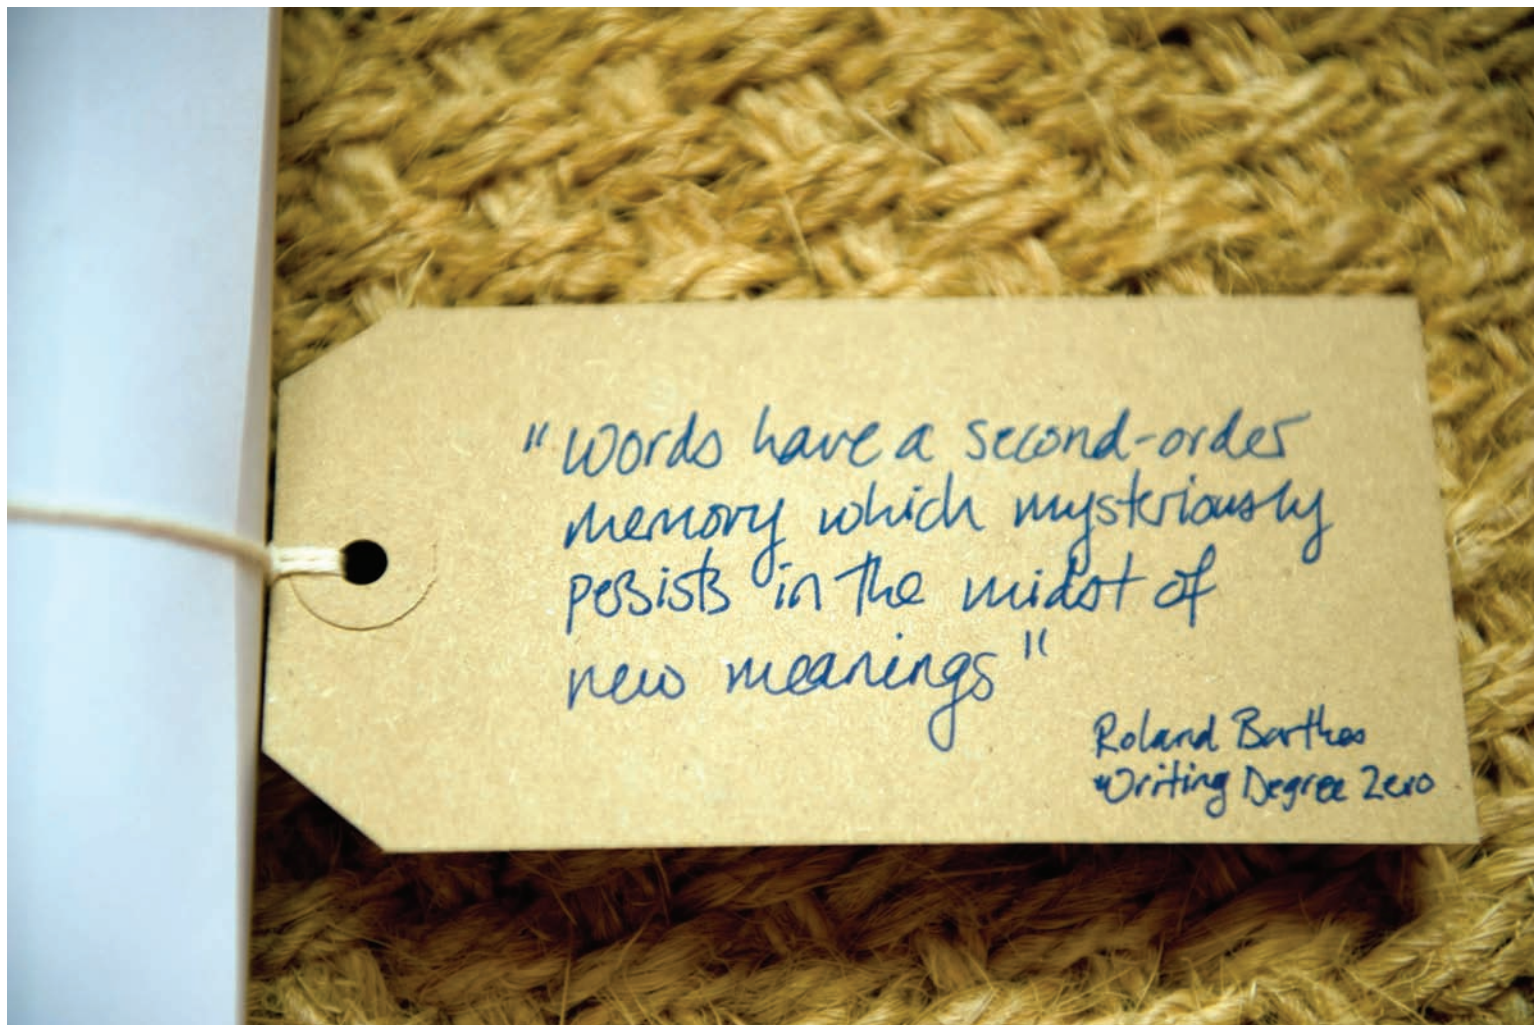 "Words have a second-order
memory which mysteriously
persists in the midst of
new meanings"
Roland Barthes
Writing Degree Zero